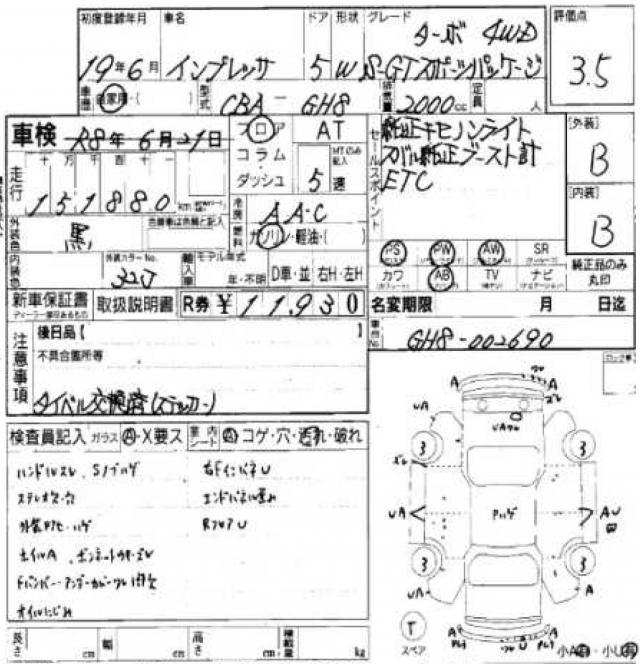 初度登録年月 車名 ドア 形状 グレード 評価点
ターボ 4WD
19年6月 インプレッサ 5 W S-GTスポーツパッケージ 3.5
車歴 自家用・( ) 型式 CBA-GH8 排気量 2000cc 定員 人
車検 R8年6月21日 フロア AT
コラム
ダッシュ MTのみ記入 5速
セールスポイント
純正キセノンライト
スバル純正ブースト計
ETC
[外装]
B
[内装]
B
走行 十万千百十一
151880 km
外装色 黒 色替車は色補と記入
冷房 AAC
燃料 ガソリン・軽油・( )
内装色 外装カラーNo. 32J
輸入車 モデル年式 年・不明 D車・並 右H・左H
PS PW AW SR
カワ AB TV ナビ
純正品のみ丸印
新車保証書 取扱説明書 R券 ¥11,930
ディーラー
名変期限 月 日迄
車台No. GH8-002690
注意事項
後日品【 】
不具合箇所等
タイベル交換済(ステッカー)
検査員記入 ガラス A・X要ス 内 シート コゲ・穴・汚れ・破れ
ハンドルスレ、Sノブハゲ
ステレオ欠・穴
右FインパネU
RフロアU
オイルにじみ
A A
UA
UAワレ
3 3
UA Pハゲ AU
3 3
UA A
T
スペア
小A 小U
長さ cm 幅 cm 高さ cm 積載量 kg